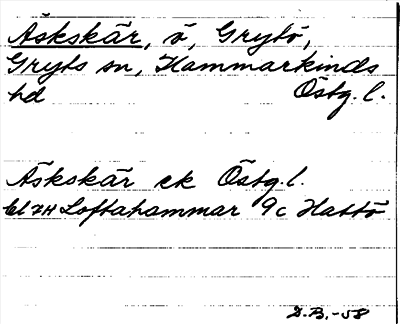 Äskskär, ö, Grytö,
Gryts sn, Hammarkinds
hd Östg. l.
Äskskär ek Östg. l.
bl 7H Loftahammar 9c Hattö
D.B. -58